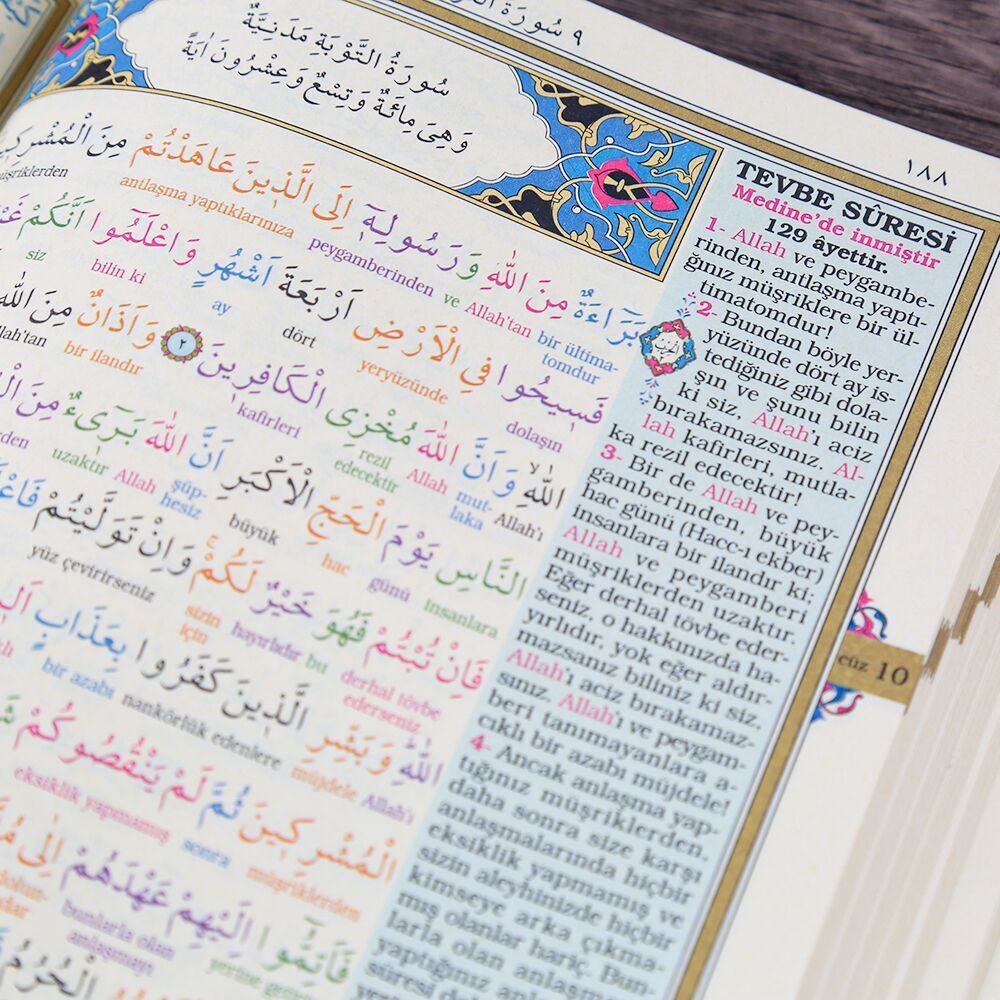 ٩ سُورَةُ
١٨٨
سُورَةُ التَّوْبَةِ مَدَنِيَّةٌ
وَهِىَ مِائَةٌ وَتِسْعٌ وَعِشْرُونَ اٰيَةً
بَرَٓاءَةٌ مِنَ اللّٰهِ وَرَسُولِهٖٓ اِلَى الَّذٖينَ عَاهَدْتُمْ مِنَ الْمُشْرِكٖينَ
bir ültima-tomdur Allah'tan ve peygamberinden antlaşma yaptıklarınıza müşriklerden
فَسٖيحُوا فِى الْاَرْضِ اَرْبَعَةَ اَشْهُرٍ وَاعْلَمُٓوا اَنَّكُمْ
dolaşın yeryüzünde dört ay bilin ki siz
اللّٰهِ وَاَنَّ اللّٰهَ مُخْزِى الْكَافِرٖينَ ٢ وَاَذَانٌ مِنَ اللّٰهِ
Allah'ı mut-laka Allah rezil edecektir kafirleri bir ilandır Allah'tan
النَّاسِ يَوْمَ الْحَجِّ الْاَكْبَرِ اَنَّ اللّٰهَ بَرٖٓىءٌ مِنَ
insanlara günü hac büyük şüp-hesiz Allah uzaktır
فَاِنْ تُبْتُمْ فَهُوَ خَيْرٌ لَكُمْ وَاِنْ تَوَلَّيْتُمْ
derhal tövbe ederseniz bu hayırlıdır sizin için yüz çevirirseniz
اللّٰهِ وَبَشِّرِ الَّذٖينَ كَفَرُوا بِعَذَابٍ
Allah'ı müjdele nankörlük edenlere bir azabı
الْمُشْرِكٖينَ ثُمَّ لَمْ يَنْقُصُوكُمْ
müşriklerden sonra eksiklik yapmamış
فَاَتِمُّٓوا اِلَيْهِمْ عَهْدَهُمْ اِلٰى
bunlarla olan anlaşmayı
TEVBE SÛRESİ
Medine'de inmiştir
129 âyettir.
1- Allah ve peygambe-
rinden, antlaşma yaptı-
ğınız müşriklere bir ül-
timatomdur!
2- Bundan böyle yer-
yüzünde dört ay is-
tediğiniz gibi dola-
şın ve şunu bilin
ki siz, Allah'ı aciz
bırakamazsınız. Al-
lah kafirleri, mutla-
ka rezil edecektir!
3- Bir de Allah ve pey-
gamberinden, büyük
hac günü (Hacc-ı ekber)
insanlara bir ilandır ki;
Allah ve peygamberi
müşriklerden uzaktır.
Eğer derhal tövbe eder-
seniz, o hakkınızda ha-
yırlıdır. yok eğer aldır-
mazsanız biliniz ki siz,
Allah'ı aciz bırakamaz-
sınız. Allah'ı ve peygam-
beri tanımayanlara a-
cıklı bir azabı müjdele!
4- Ancak anlaşma yap-
tığınız müşriklerden,
daha sonra size karşı
anlaşmalarında hiçbir
eksiklik yapmamış ve
sizin aleyhinizde hiçbir
kimseye arka çıkma-
mış olanlar hariç. Bun-
larla olan anlaşma
yaptığınız
cüz 10